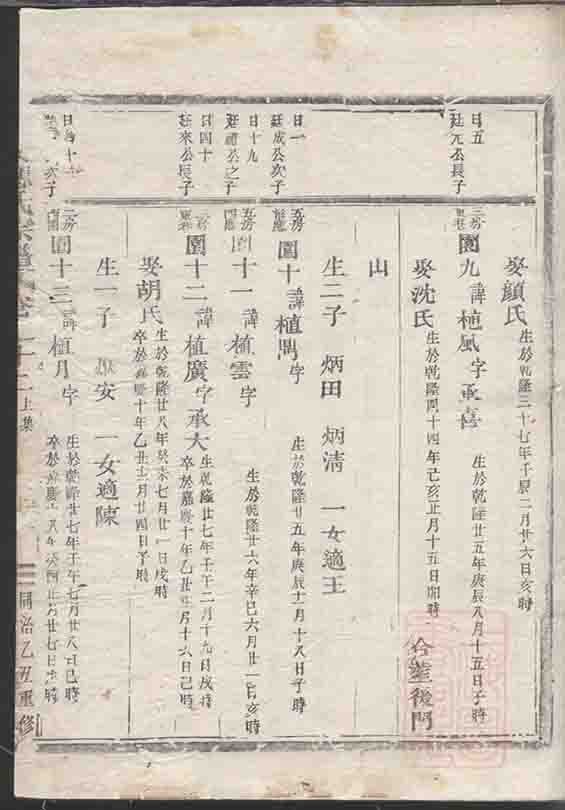 娶顏氏 生於乾隆三十七年壬辰二月廿六日亥時
日五
廷元公長子
三房
園九 諱植風 字承喜 生於乾隆廿五年庚辰八月十五日子時
娶沈氏 生於乾隆四十四年己亥正月十五日卯時 合塟後門
山
日一
廷成公次子
五房
園十 諱植閏 字 生於乾隆廿五年庚辰十一月十八日子時
生二子 炳田 炳淸 一女適王
日十九
公之子
五房
園十一 諱植雲 字 生於乾隆廿六年辛巳六月廿一日亥時
日四十
廷來公長子
園十二 諱植廣 字承大 生於乾隆廿七年壬午二月十九日戌時
卒於嘉慶十年乙丑 月十六日己時
娶胡氏 生於乾隆廿八年癸未七月廿一日戌時
卒於嘉慶十年乙丑 月廿四日子時
生一子 安 一女適陳
次子
園十三 諱植月 字 生於乾隆廿七年壬午七月廿八日己時
卒於嘉慶
上集
同治乙丑重修